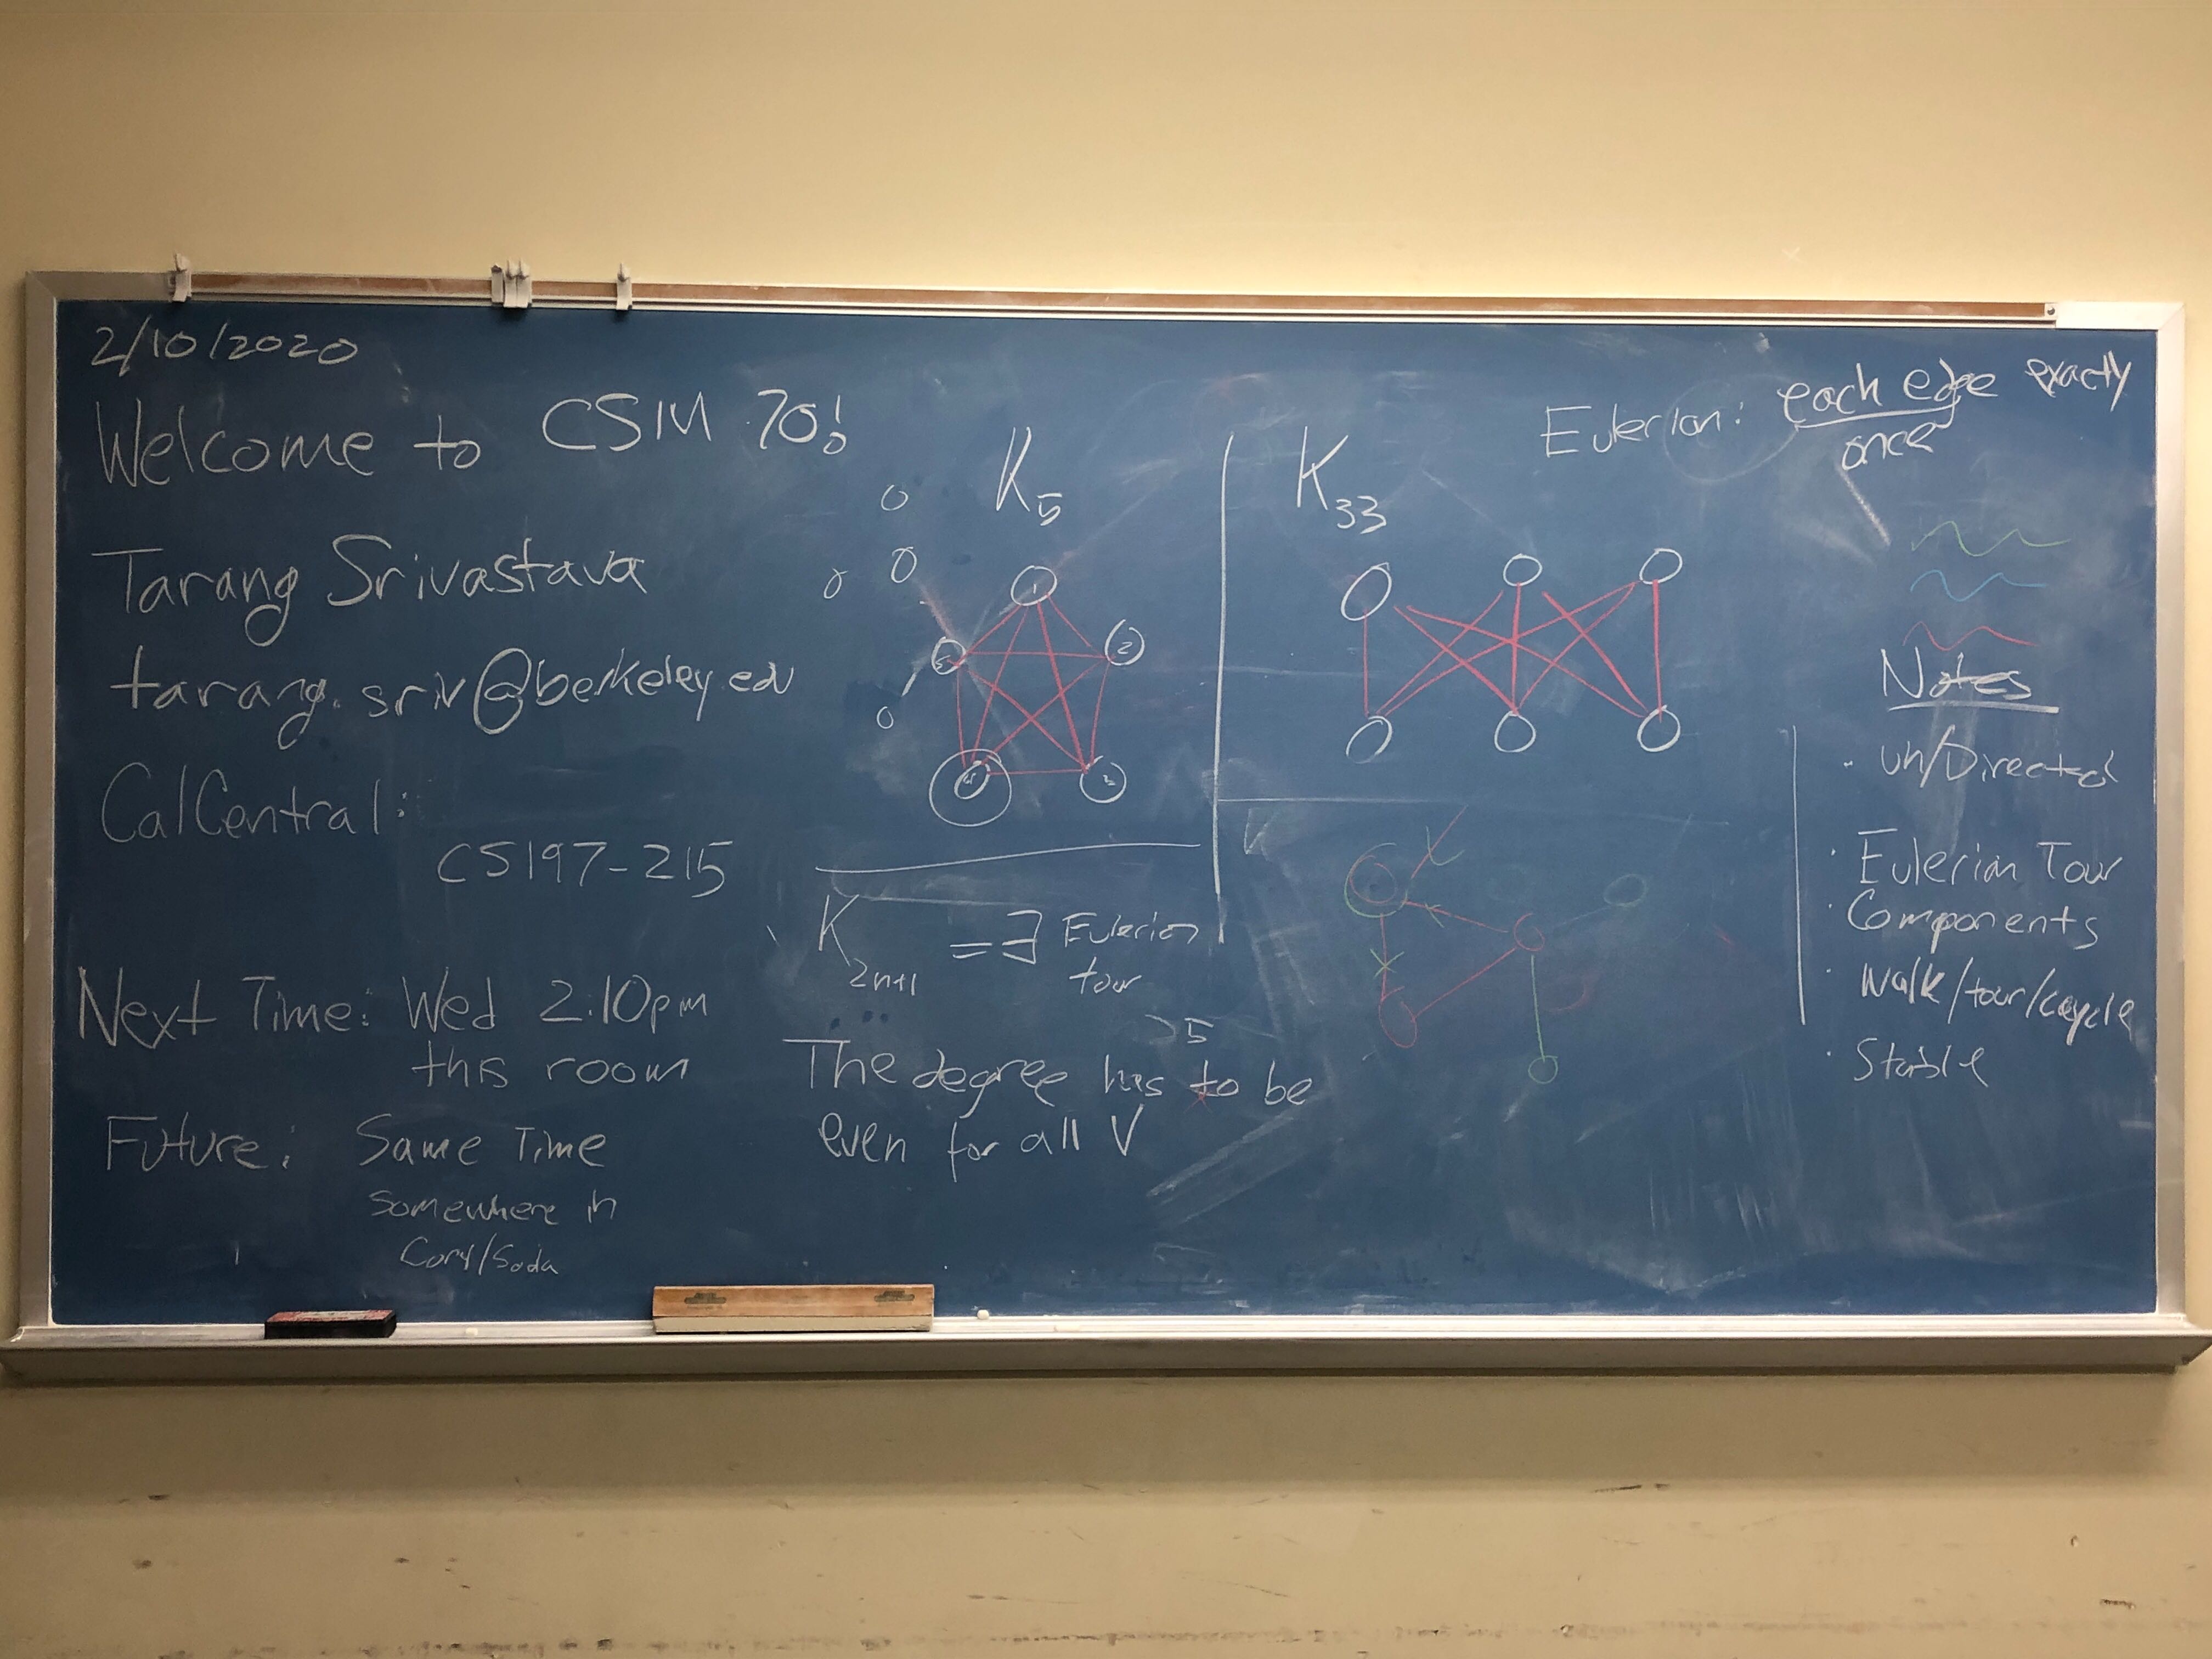 2/10/2020
Welcome to CSM 70!
Tarang Srivastava
tarang.sriv@berkeley.edu
CalCentral:
CS197-215
Next Time: Wed 2:10pm
this room
Future: Same Time
Somewhere in
Cory/Soda
K5
1
2
3
4
5
K2n+1 = ∃ Eulerian
tour
>5
The degree has to be
even for all V
K33
Eulerian: each edge exactly
once
Notes
· un/Directed
· Eulerian Tour
· Components
· Walk/tour/cycle
· Stable